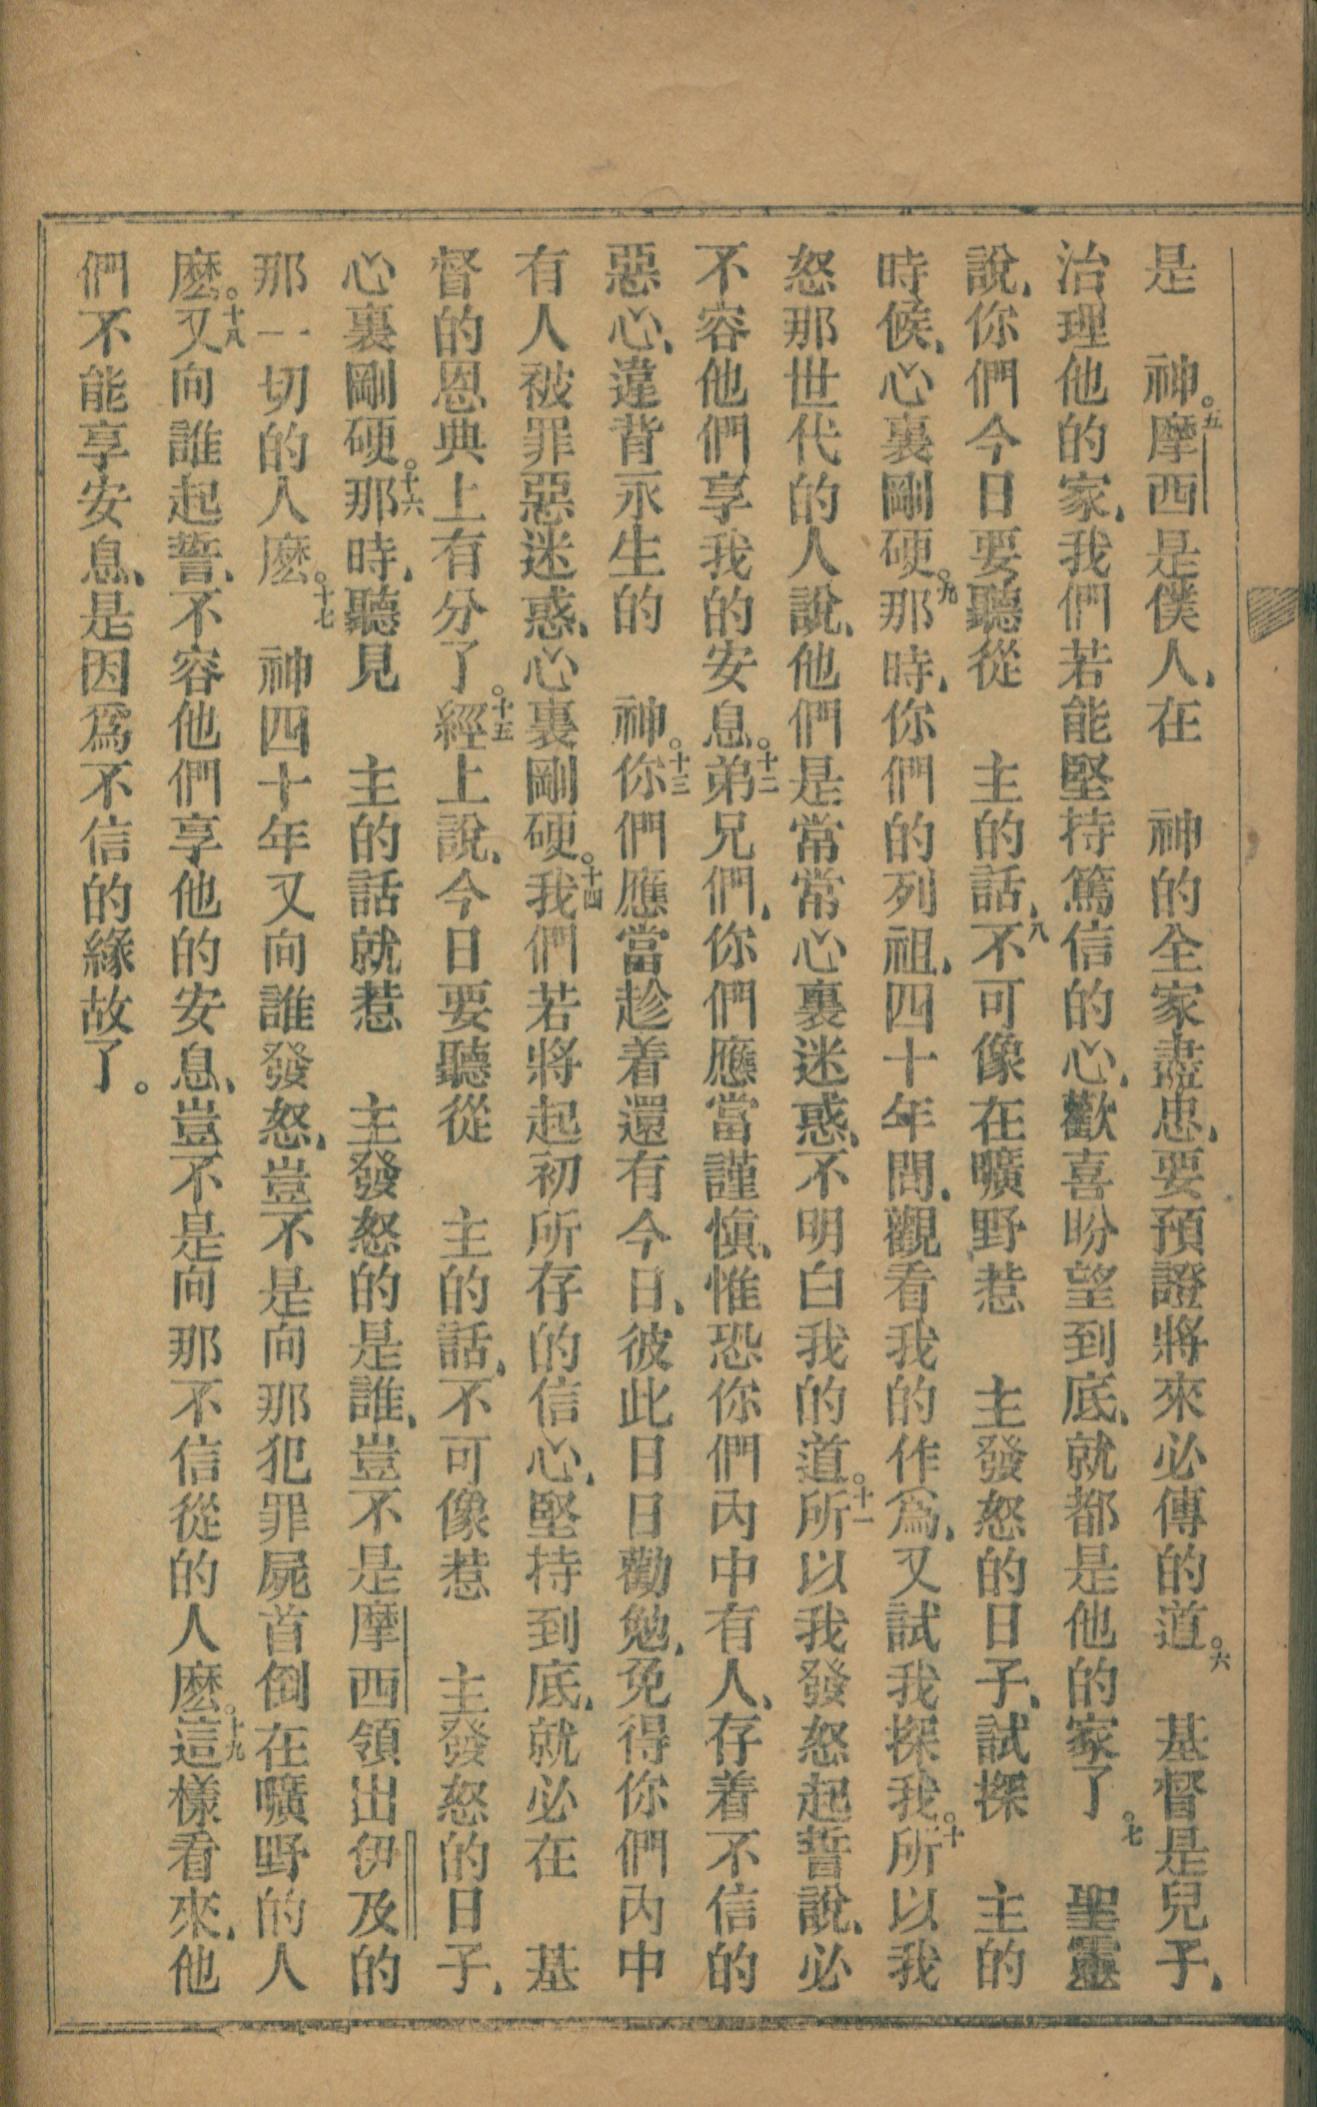 是　神。五摩西是僕人、在　神的全家盡忠、要預證將來必傳的道。六　基督是兒子、
治理他的家、我們若能堅持篤信的心、歡喜盼望到底、就都是他的家了。七　聖靈
說、你們今日要聽從　主的話、八不可像在曠野惹　主發怒的日子、試探　主的
時候、心裏剛硬。九那時、你們的列祖、四十年間、觀看我的作爲、又試我探我。十所以我
怒那世代的人說、他們是常常心裏迷惑、不明白我的道。十一所以我發怒起誓說、必
不容他們享我的安息。十二弟兄們、你們應當謹愼、惟恐你們內中有人、存着不信的
惡心、違背永生的　神。十三你們應當趁着還有今日、彼此日日勸勉、免得你們內中
有人被罪惡迷惑、心裏剛硬。十四我們若將起初所存的信心、堅持到底、就必在　基
督的恩典上有分了。十五經上說、今日要聽從　主的話、不可像惹　主發怒的日子、
心裏剛硬。十六那時、聽見　主的話就惹　主發怒的是誰、豈不是摩西領出伊及的
那一切的人麽。十七　神四十年又向誰發怒、豈不是向那犯罪屍首倒在曠野的人
麽。十八又向誰起誓、不容他們享他的安息、豈不是向那不信從的人麽。十九這樣看來、他
們不能享安息、是因爲不信的緣故了。